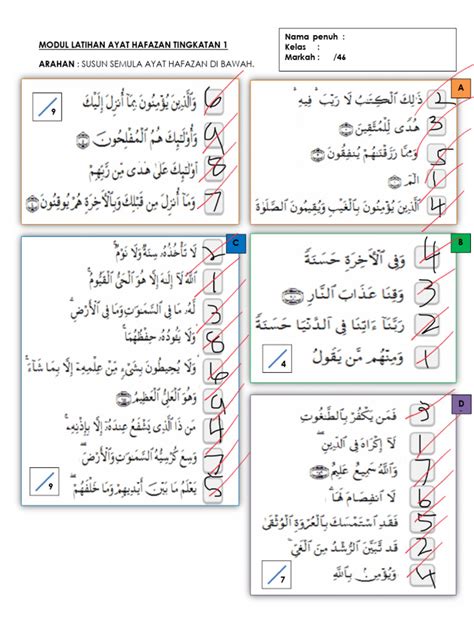 Nama penuh :
Kelas :
Markah : /46
MODUL LATIHAN AYAT HAFAZAN TINGKATAN 1
ARAHAN : SUSUN SEMULA AYAT HAFAZAN DI BAWAH.
A
ذَٰلِكَ الْكِتَٰبُ لَا رَيْبَ ۛ فِيهِ ۛ 2
هُدًى لِّلْمُتَّقِينَ 3
وَمِمَّا رَزَقْنَٰهُمْ يُنفِقُونَ 5
الٓمٓ 1
الَّذِينَ يُؤْمِنُونَ بِالْغَيْبِ وَيُقِيمُونَ الصَّلَوٰةَ 4
9
وَالَّذِينَ يُؤْمِنُونَ بِمَا أُنزِلَ إِلَيْكَ 6
وَأُولَٰئِكَ هُمُ الْمُفْلِحُونَ 9
أُولَٰئِكَ عَلَىٰ هُدًى مِّن رَّبِّهِمْ 8
وَمَا أُنزِلَ مِن قَبْلِكَ وَبِالْآخِرَةِ هُمْ يُوقِنُونَ 7
B
وَفِي الْآخِرَةِ حَسَنَةً 4
وَقِنَا عَذَابَ النَّارِ 3
رَبَّنَا ءَاتِنَا فِي الدُّنْيَا حَسَنَةً 2
وَمِنْهُم مَّن يَقُولُ 1
4
C
لَا تَأْخُذُهُ سِنَةٌ وَلَا نَوْمٌ ۚ 2
اللَّهُ لَا إِلَٰهَ إِلَّا هُوَ الْحَيُّ الْقَيُّومُ ۚ 1
لَّهُ مَا فِي السَّمَٰوَٰتِ وَمَا فِي الْأَرْضِ ۗ 3
وَلَا يَئُودُهُ حِفْظُهُمَا ۚ 8
وَلَا يُحِيطُونَ بِشَيْءٍ مِّنْ عِلْمِهِ إِلَّا بِمَا شَاءَ ۚ 6
وَهُوَ الْعَلِيُّ الْعَظِيمُ 9
مَن ذَا الَّذِي يَشْفَعُ عِندَهُ إِلَّا بِإِذْنِهِ ۚ 4
وَسِعَ كُرْسِيُّهُ السَّمَٰوَٰتِ وَالْأَرْضَ ۖ 7
يَعْلَمُ مَا بَيْنَ أَيْدِيهِمْ وَمَا خَلْفَهُمْ ۖ 5
9
D
فَمَن يَكْفُرْ بِالطَّٰغُوتِ 3
لَا إِكْرَاهَ فِي الدِّينِ ۖ 1
وَاللَّهُ سَمِيعٌ عَلِيمٌ 7
لَا انفِصَامَ لَهَا ۗ 6
فَقَدِ اسْتَمْسَكَ بِالْعُرْوَةِ الْوُثْقَىٰ 5
قَد تَّبَيَّنَ الرُّشْدُ مِنَ الْغَيِّ ۚ 2
وَيُؤْمِن بِاللَّهِ 4
7